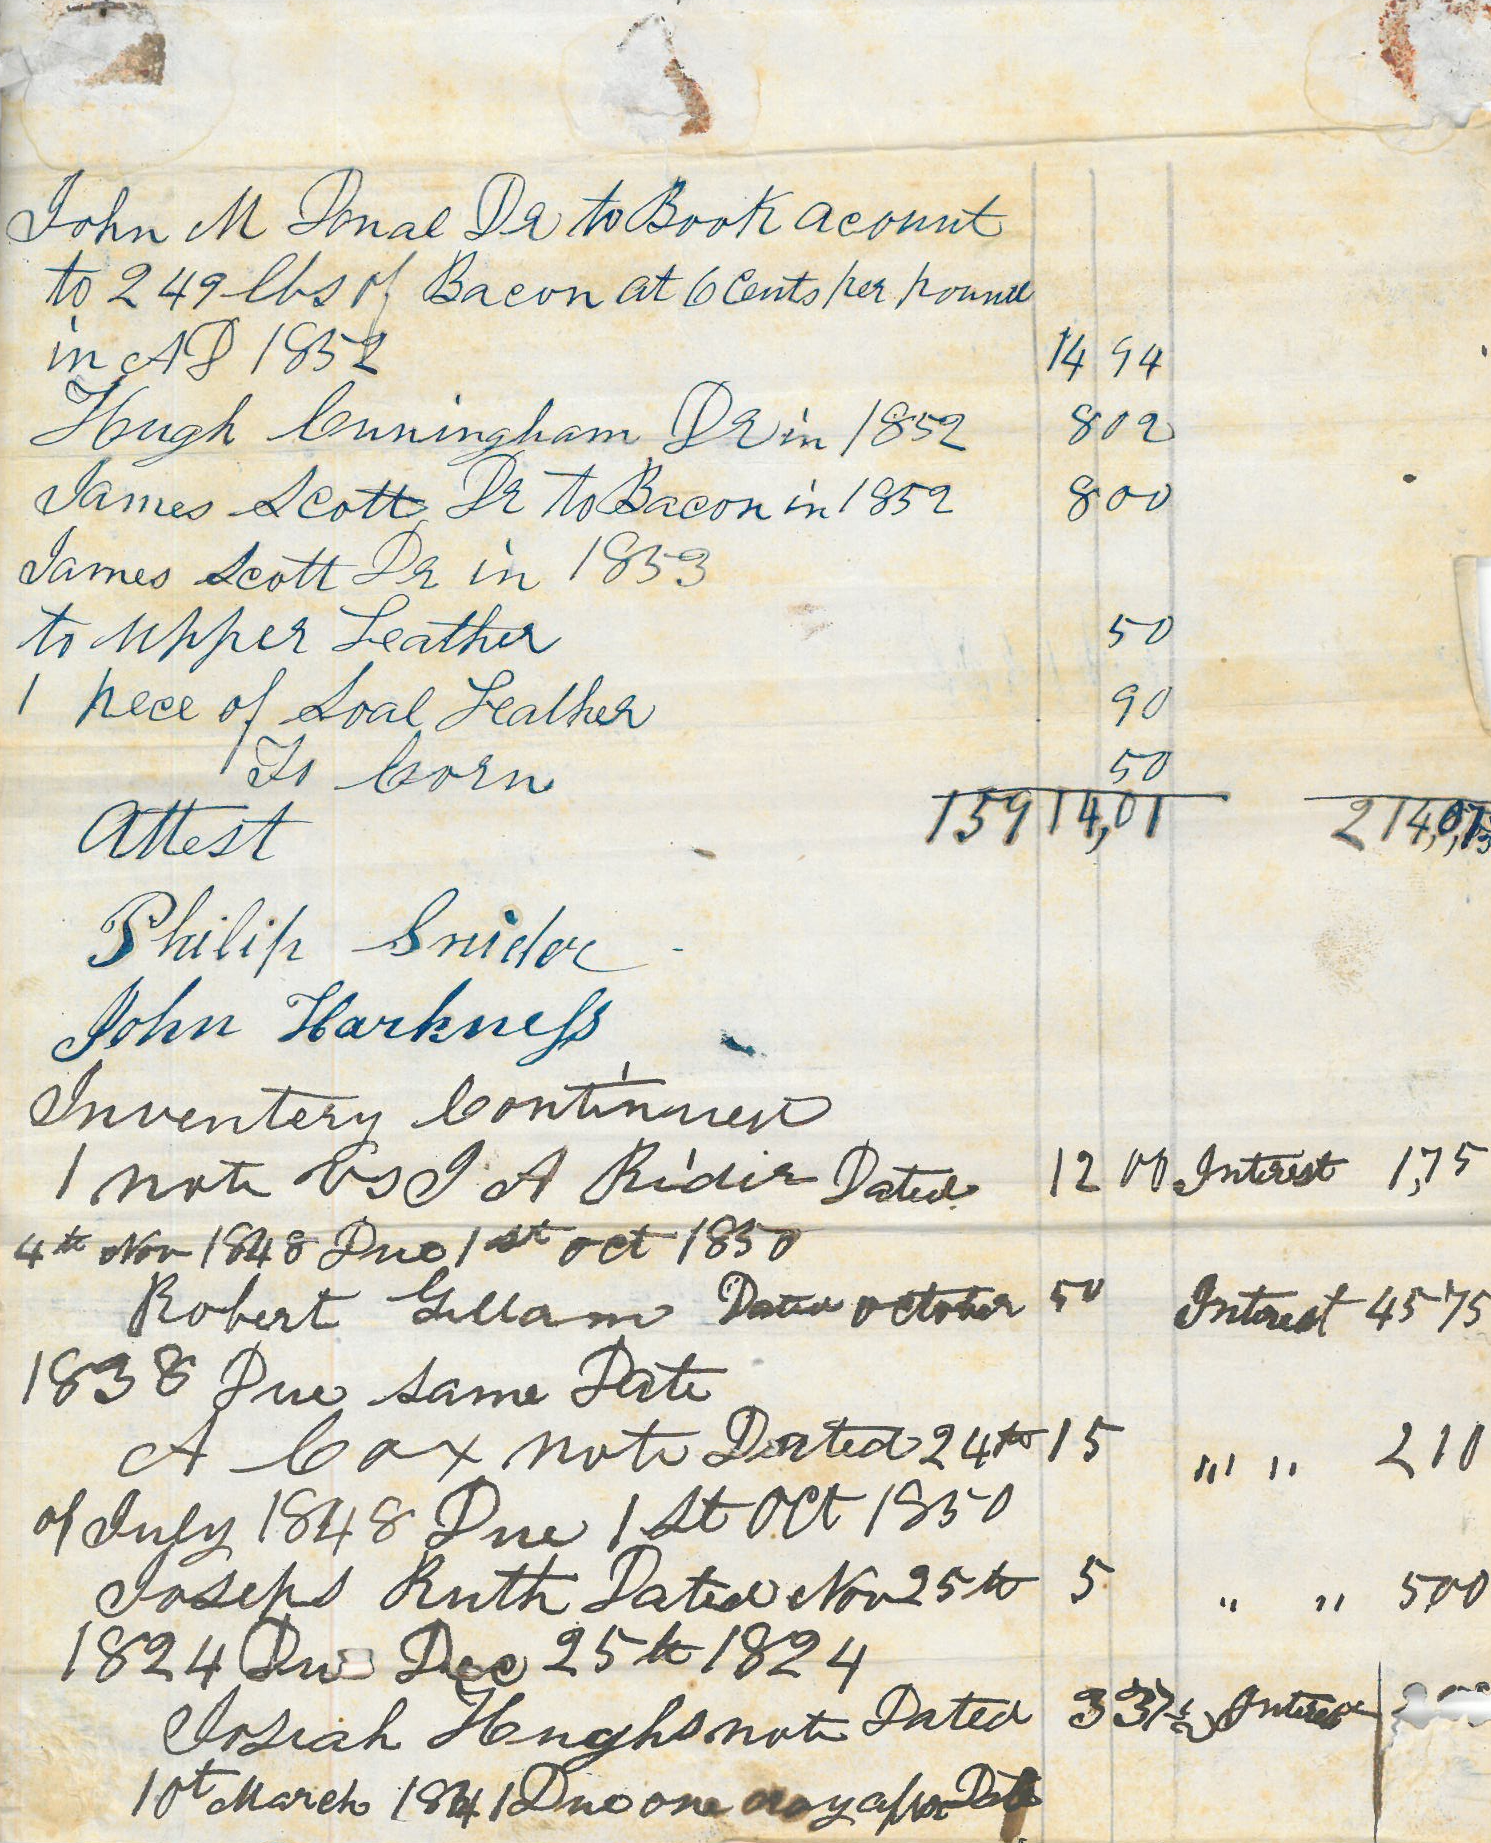 John M Donal Dr to Book acount
to 249 lbs of Bacon at 6 Cents per pound
in AD 1852 14 94
Hugh Cuningham Dr in 1852 8 02
James Scott Dr to Bacon in 1852 8 00
James Scott Dr in 1853
to upper Leather 50
1 pece of Soal Leather 90
To Corn 50
Attest 159 14,01 214,01,
Philip Snider
John Harkness
Inventory Continued
1 note vs J A Rider Dated 12 00 Interest 1,75
4th Nov 1848 Due 1st oct 1850
Robert Gillam Dated october 50 Interest 45 75
1838 Due same Date
A Cox note Dated 24th 15 " " 2 10
of July 1848 Due 1st Oct 1850
Joseph Ruth Dated Nov 25th 5 " " 5,00
1824 Due Dec 25th 1824
Josiah Hughs note Dated 3 37½ Interest
10th March 1841 Due one day after Date